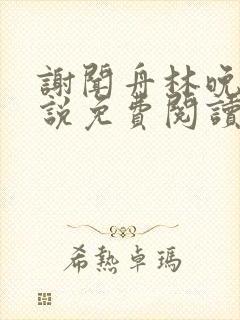 謝聞舟林晚
說免費閱讀
希熱卓瑪